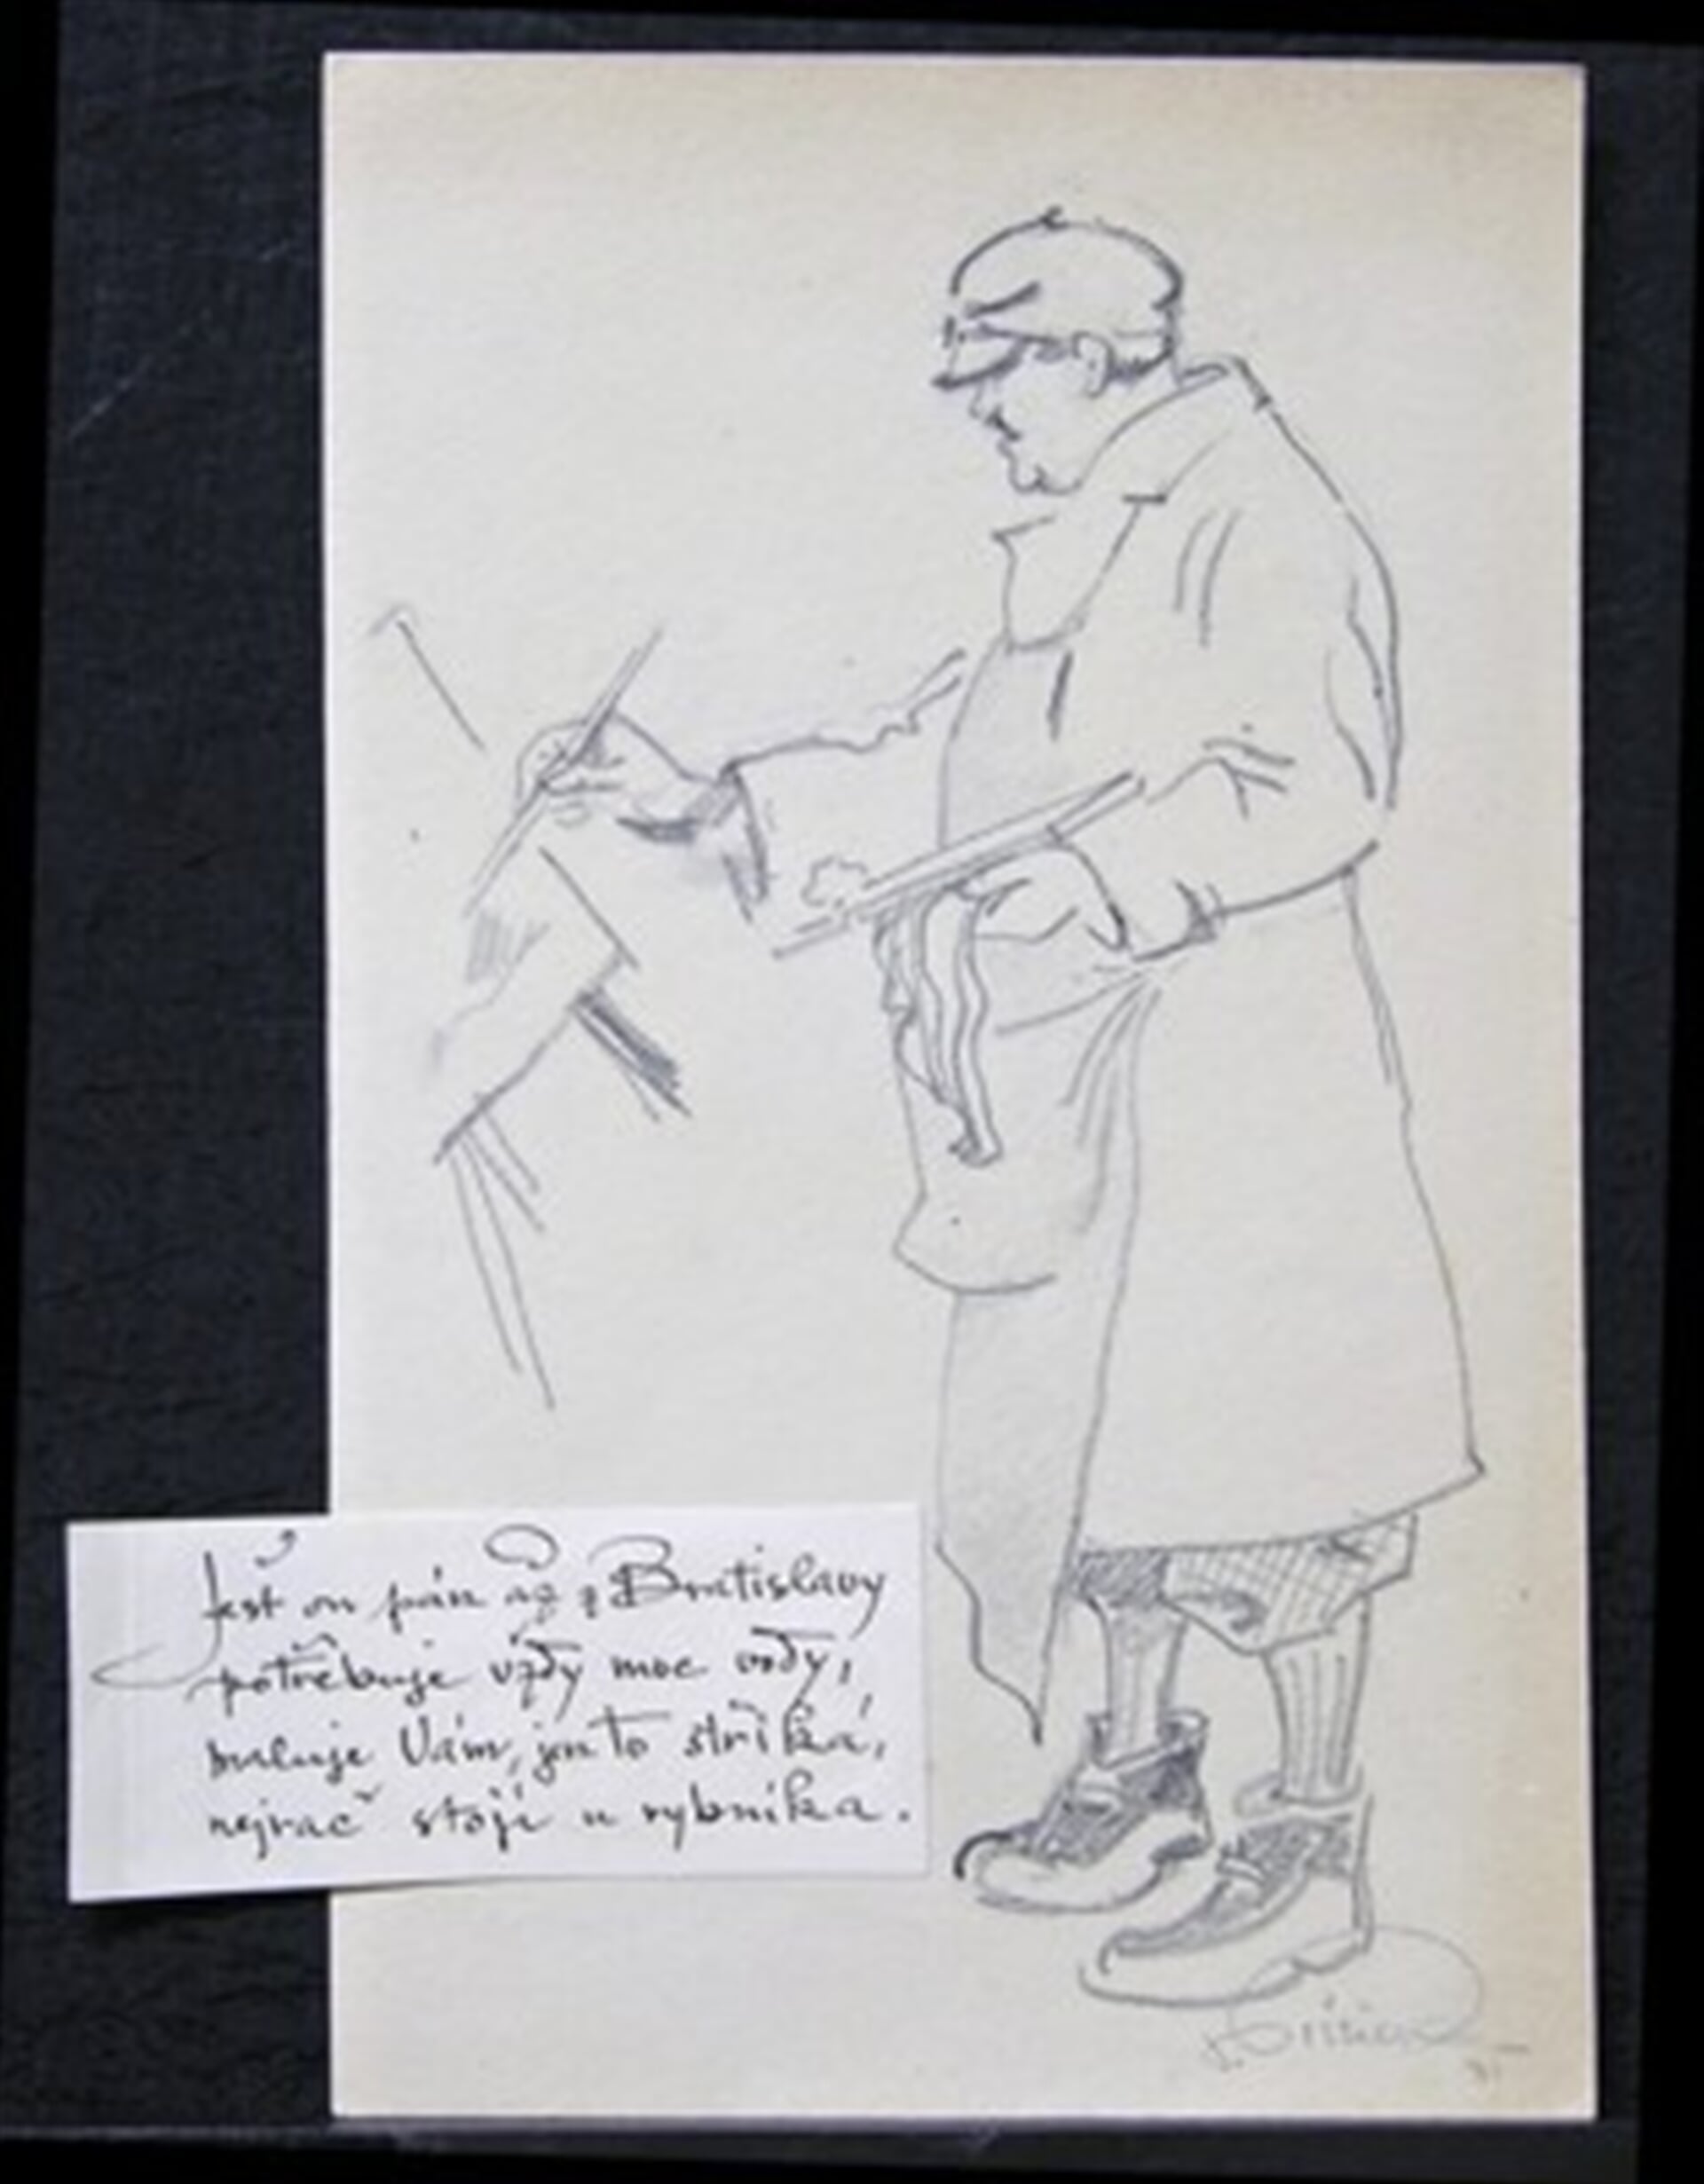 Jest on pán až z Bratislavy
potřebuje vždy moc vody,
maluje Vám, jen to stříká,
nejrač stojí u rybníka.